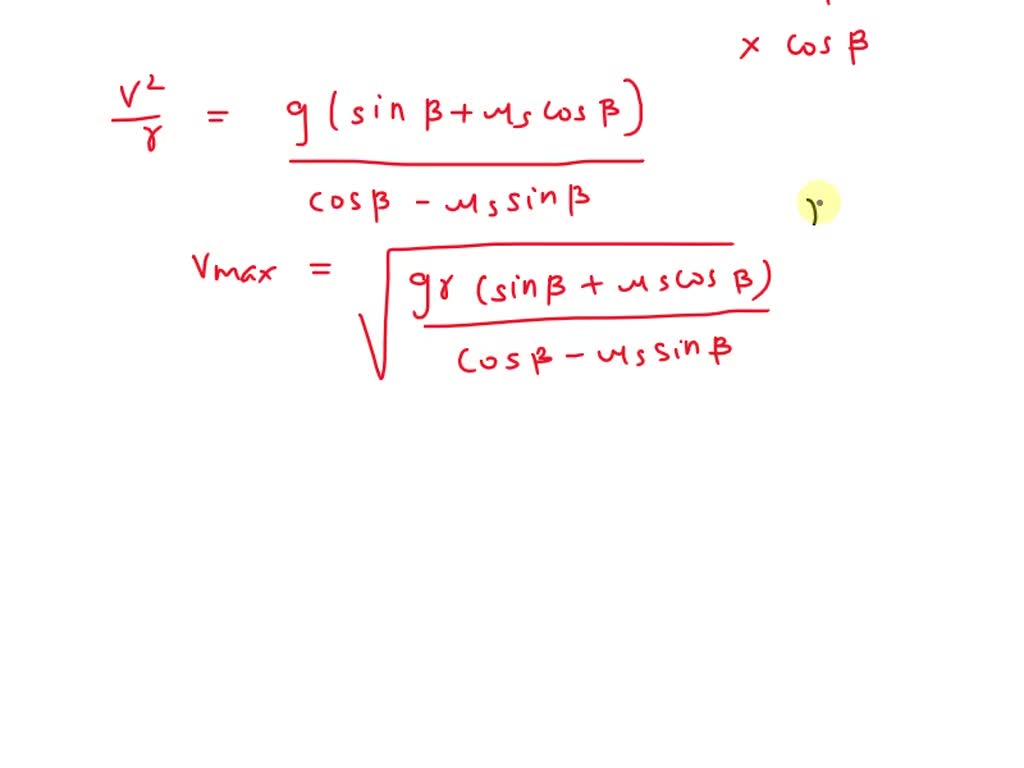 × cos β
v²/r = g (sin β + μs cos β) / cos β - μs sin β
Vmax = √(gr (sin β + μs cos β) / cos β - μs sin β)